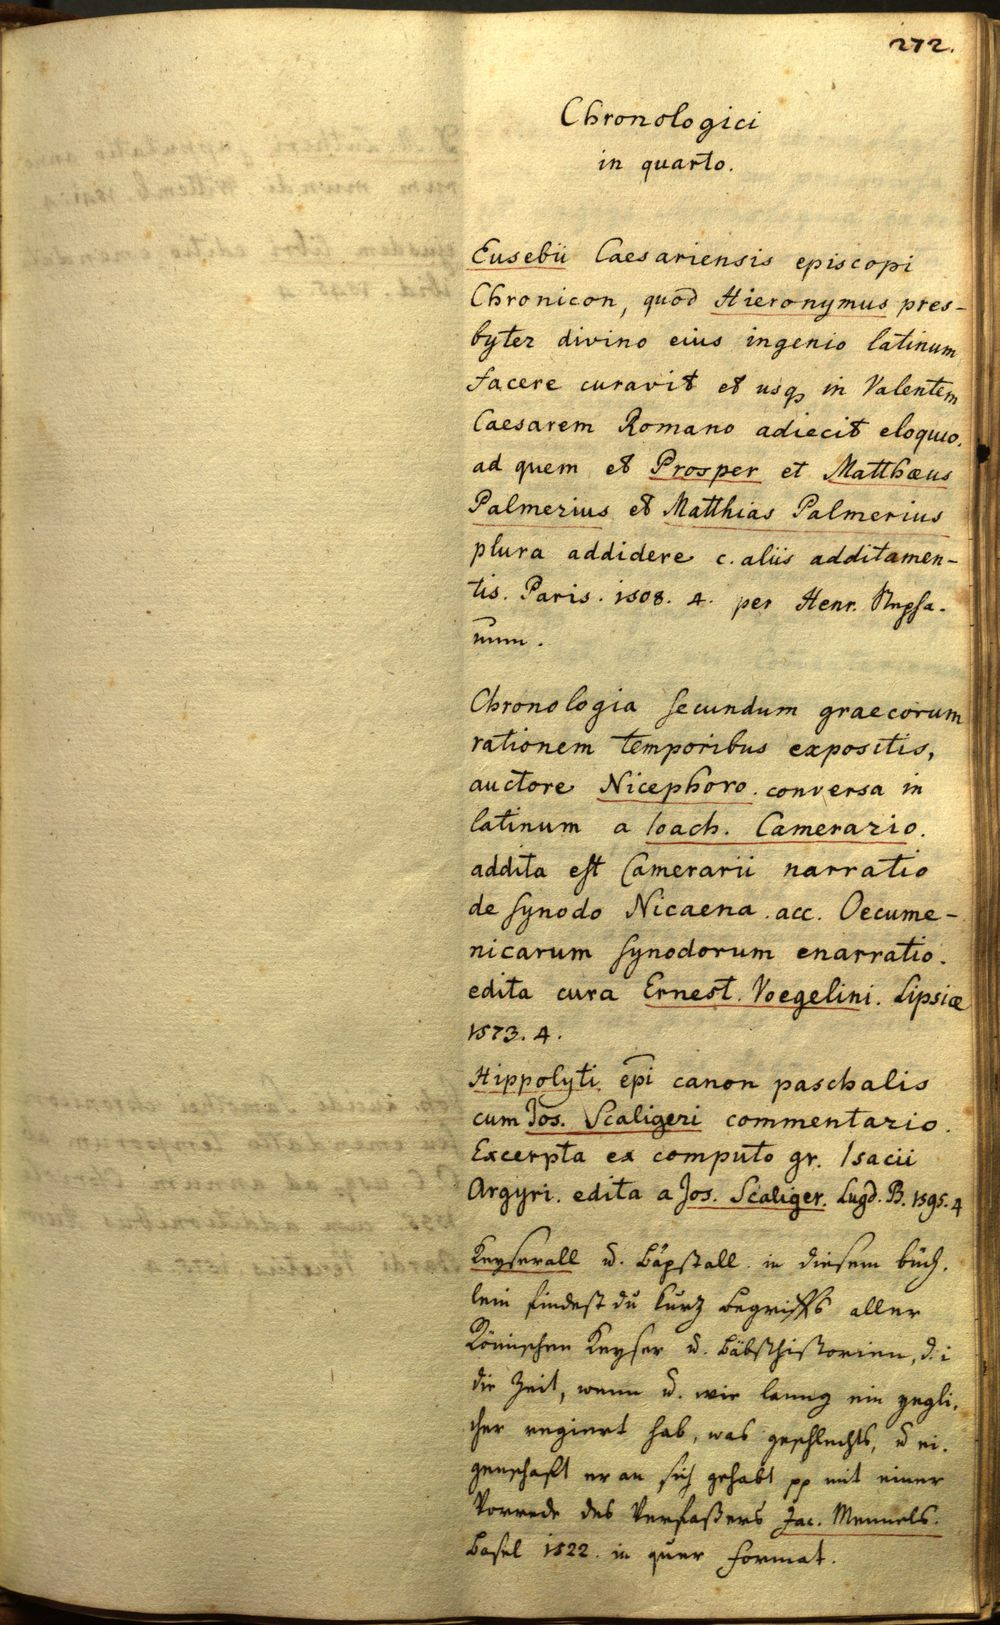 272.
Chronologici
in quarto.
Eusebii Caesariensis episcopi
Chronicon, quod Hieronymus pres-
byter divino eius ingenio latinum
facere curavit et usq in Valentem
Caesarem Romano adiecit eloquio.
ad quem et Prosper et Matthæus
Palmerius et Matthias Palmerius
plura addidere c. aliis additamen-
tis. Paris. 1508. 4. per Henr.
Chronologia secundum graecorum
rationem temporibus expositis,
auctore Nicephoro. conversa in
latinum a Ioach. Camerario.
addita est Camerarii narratio
de synodo Nicaena. acc. Oecume-
nicarum synodorum enarratio.
edita cura Ernest. Voegelini. Lipsiæ
1573. 4.
Hippolyti epi canon paschalis
cum Jos. Scaligeri commentario.
Excerpta ex computo gr. Isacii
Argyri. edita a Jos. Scaliger. Lugd. B. 1595. 4
Keyserall u. Bäpstall. in diesem büch.
lein findest du kurz begriffs aller
Römischen Keyser u. Bäbsthistorien, d. i
die Zeit, wenn u. wie lanng ein yegli.
cher regiert hab, was geschlechts, u ei.
genschafft er an sich gehabt pp mit einer
Vorrede des Verfaßers Jac. Mennels.
Basel 1522. in quer format.